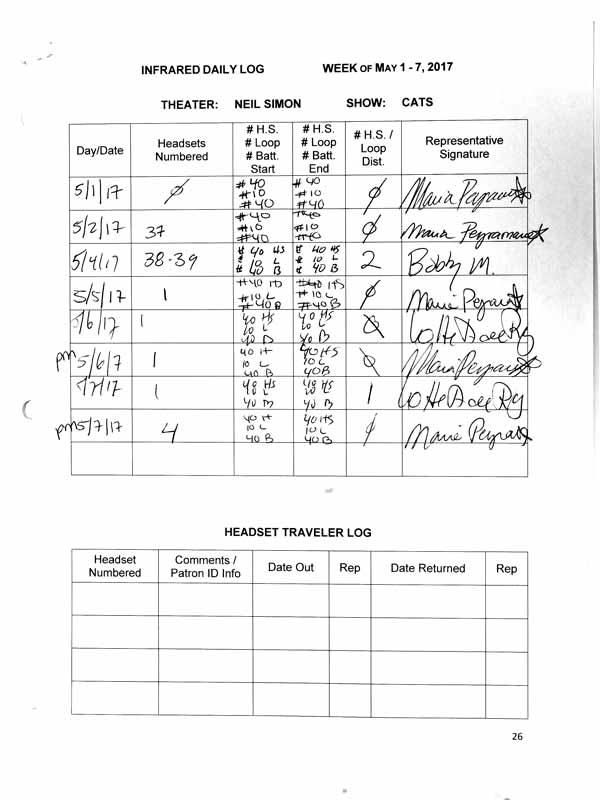 INFRARED DAILY LOG WEEK OF MAY 1 - 7, 2017
THEATER: NEIL SIMON SHOW: CATS
Day/Date Headsets Numbered # H.S. # Loop # Batt. Start # H.S. # Loop # Batt. End # H.S. / Loop Dist. Representative Signature
5/1/17 ø #40 #10 #40 #40 #10 #40 ø Maria
5/2/17 37 #40 #10 #40 #40 #10 #40 ø Maria
5/4/17 38-39 # 40 HS # 10 L # 40 B # 40 HS # 10 L # 40 B 2 Bobby M.
5/5/17 1 #40 #10 L #40B #40 HS #10 L #40B ø Maria
5/6/17 1 40 HS 10 L 40 B 40 HS 10 L 40 B ø
pm 5/6/17 1 40 H 10 L 40 B 40 HS 10L 40B ø Maria
5/7/17 1 40 HS 10 L 40 B 40 HS 10 L 40 B 1
pm 5/7/17 4 40 H 10 L 40 B 40 HS 10 L 40 B ø Maria
HEADSET TRAVELER LOG
Headset Numbered Comments / Patron ID Info Date Out Rep Date Returned Rep
26